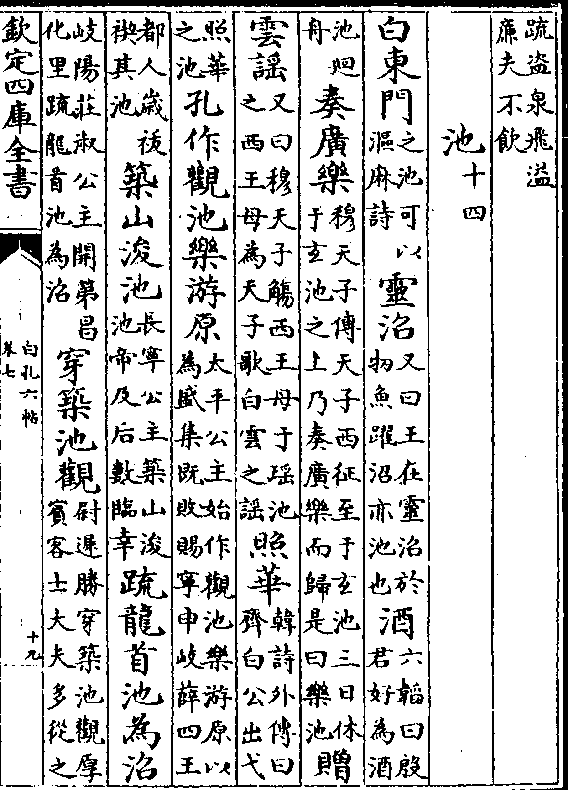 疏盗泉飛溢亷夫不飲
池十四
白東門之池可以漚麻詩靈沼又曰王在靈沼於牣魚躍沼亦池也酒六韜曰殷君好為酒
池廻舟奏廣樂穆天子傳天子西征至于玄池三日休于玄池之上乃奏廣樂而歸是曰樂池贈
雲謡又曰穆天子觴西王母于瑶池之西王母為天子歌白雲之謡照華韓詩外傳曰齊白公出弋
照華之池孔作觀池樂游原太平公主始作觀池樂游原以為盛集既敗賜寧申岐薛四王
都人歳祓禊其池築山浚池長寧公主築山浚池帝及后數臨幸疏龍首池為沼
岐陽莊淑公主開第昌化里疏龍首池為沼穿築池觀尉遲勝穿築池觀厚賓客士大夫多從之
欽定四庫全書
白孔六帖
卷七
十九